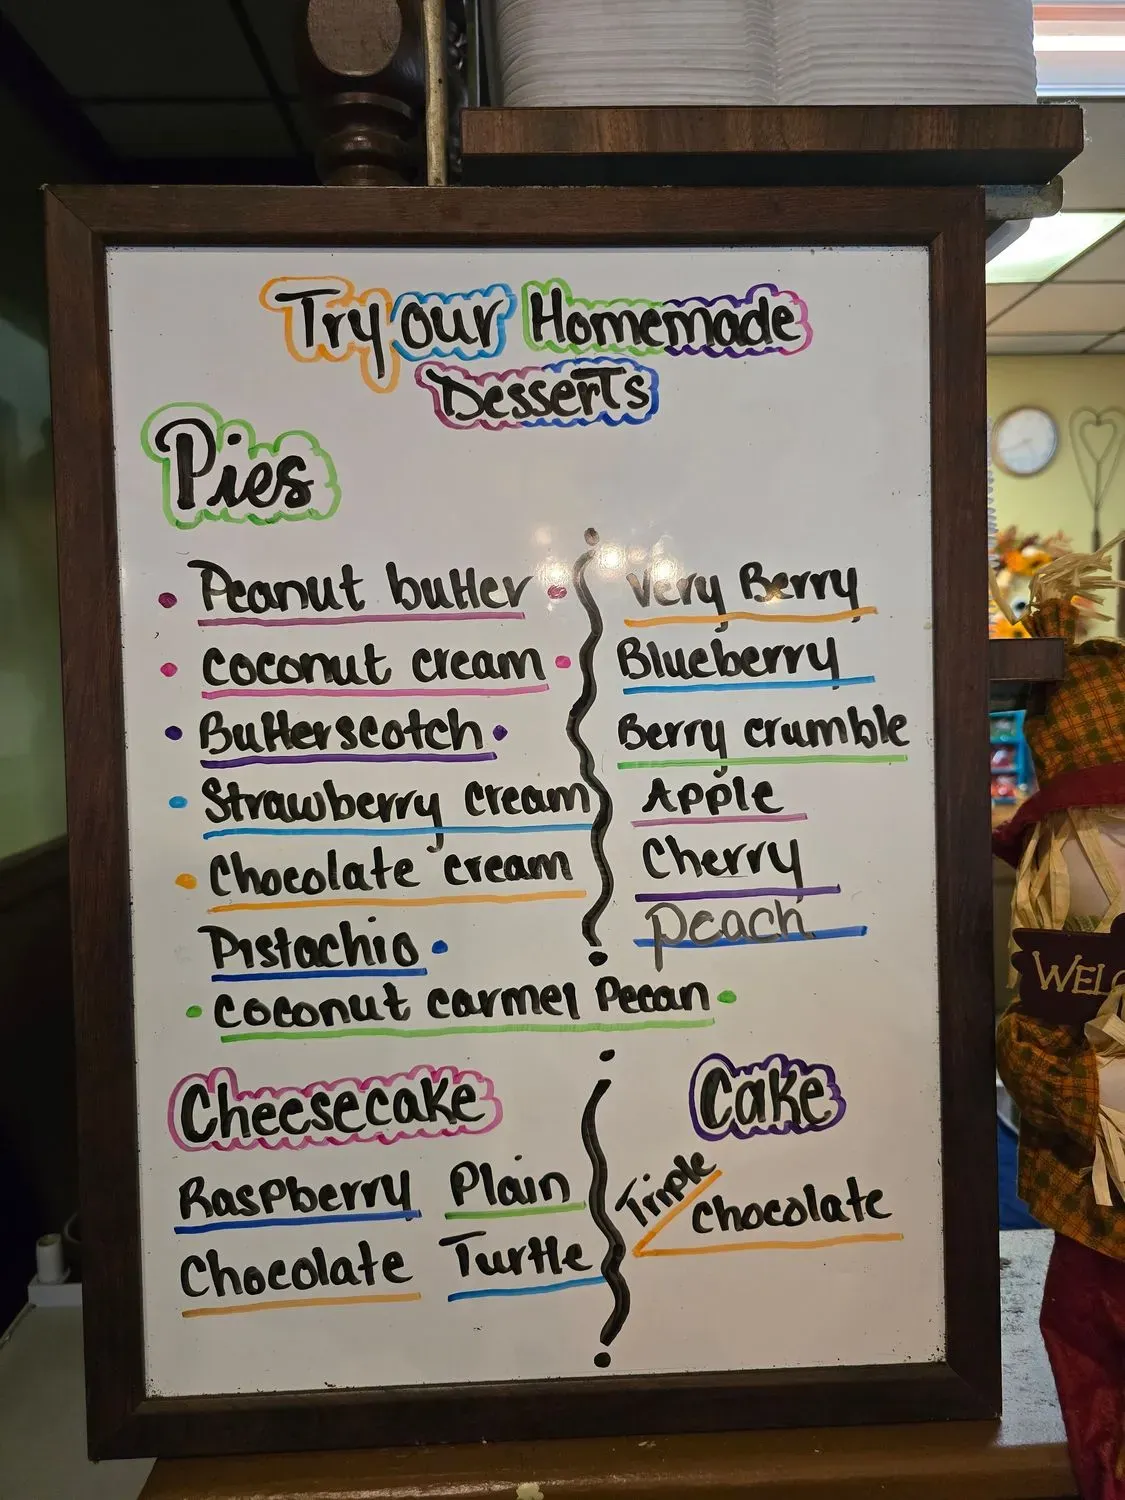 Try our Homemade
Desserts
Pies
Peanut butter
Coconut cream
Butterscotch
Strawberry cream
Chocolate cream
Pistachio
Coconut carmel Pecan
Very Berry
Blueberry
Berry crumble
Apple
Cherry
peach
Cheesecake
Raspberry Plain
Chocolate Turtle
Cake
Triple
chocolate